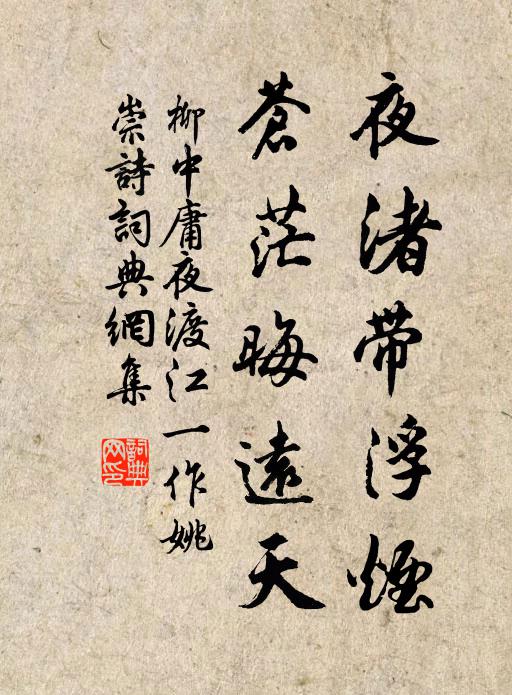 夜渚带浮煙
蒼茫晦遠天
柳中庸夜渡江一作姚
崇詩詞典網集
詞典网印